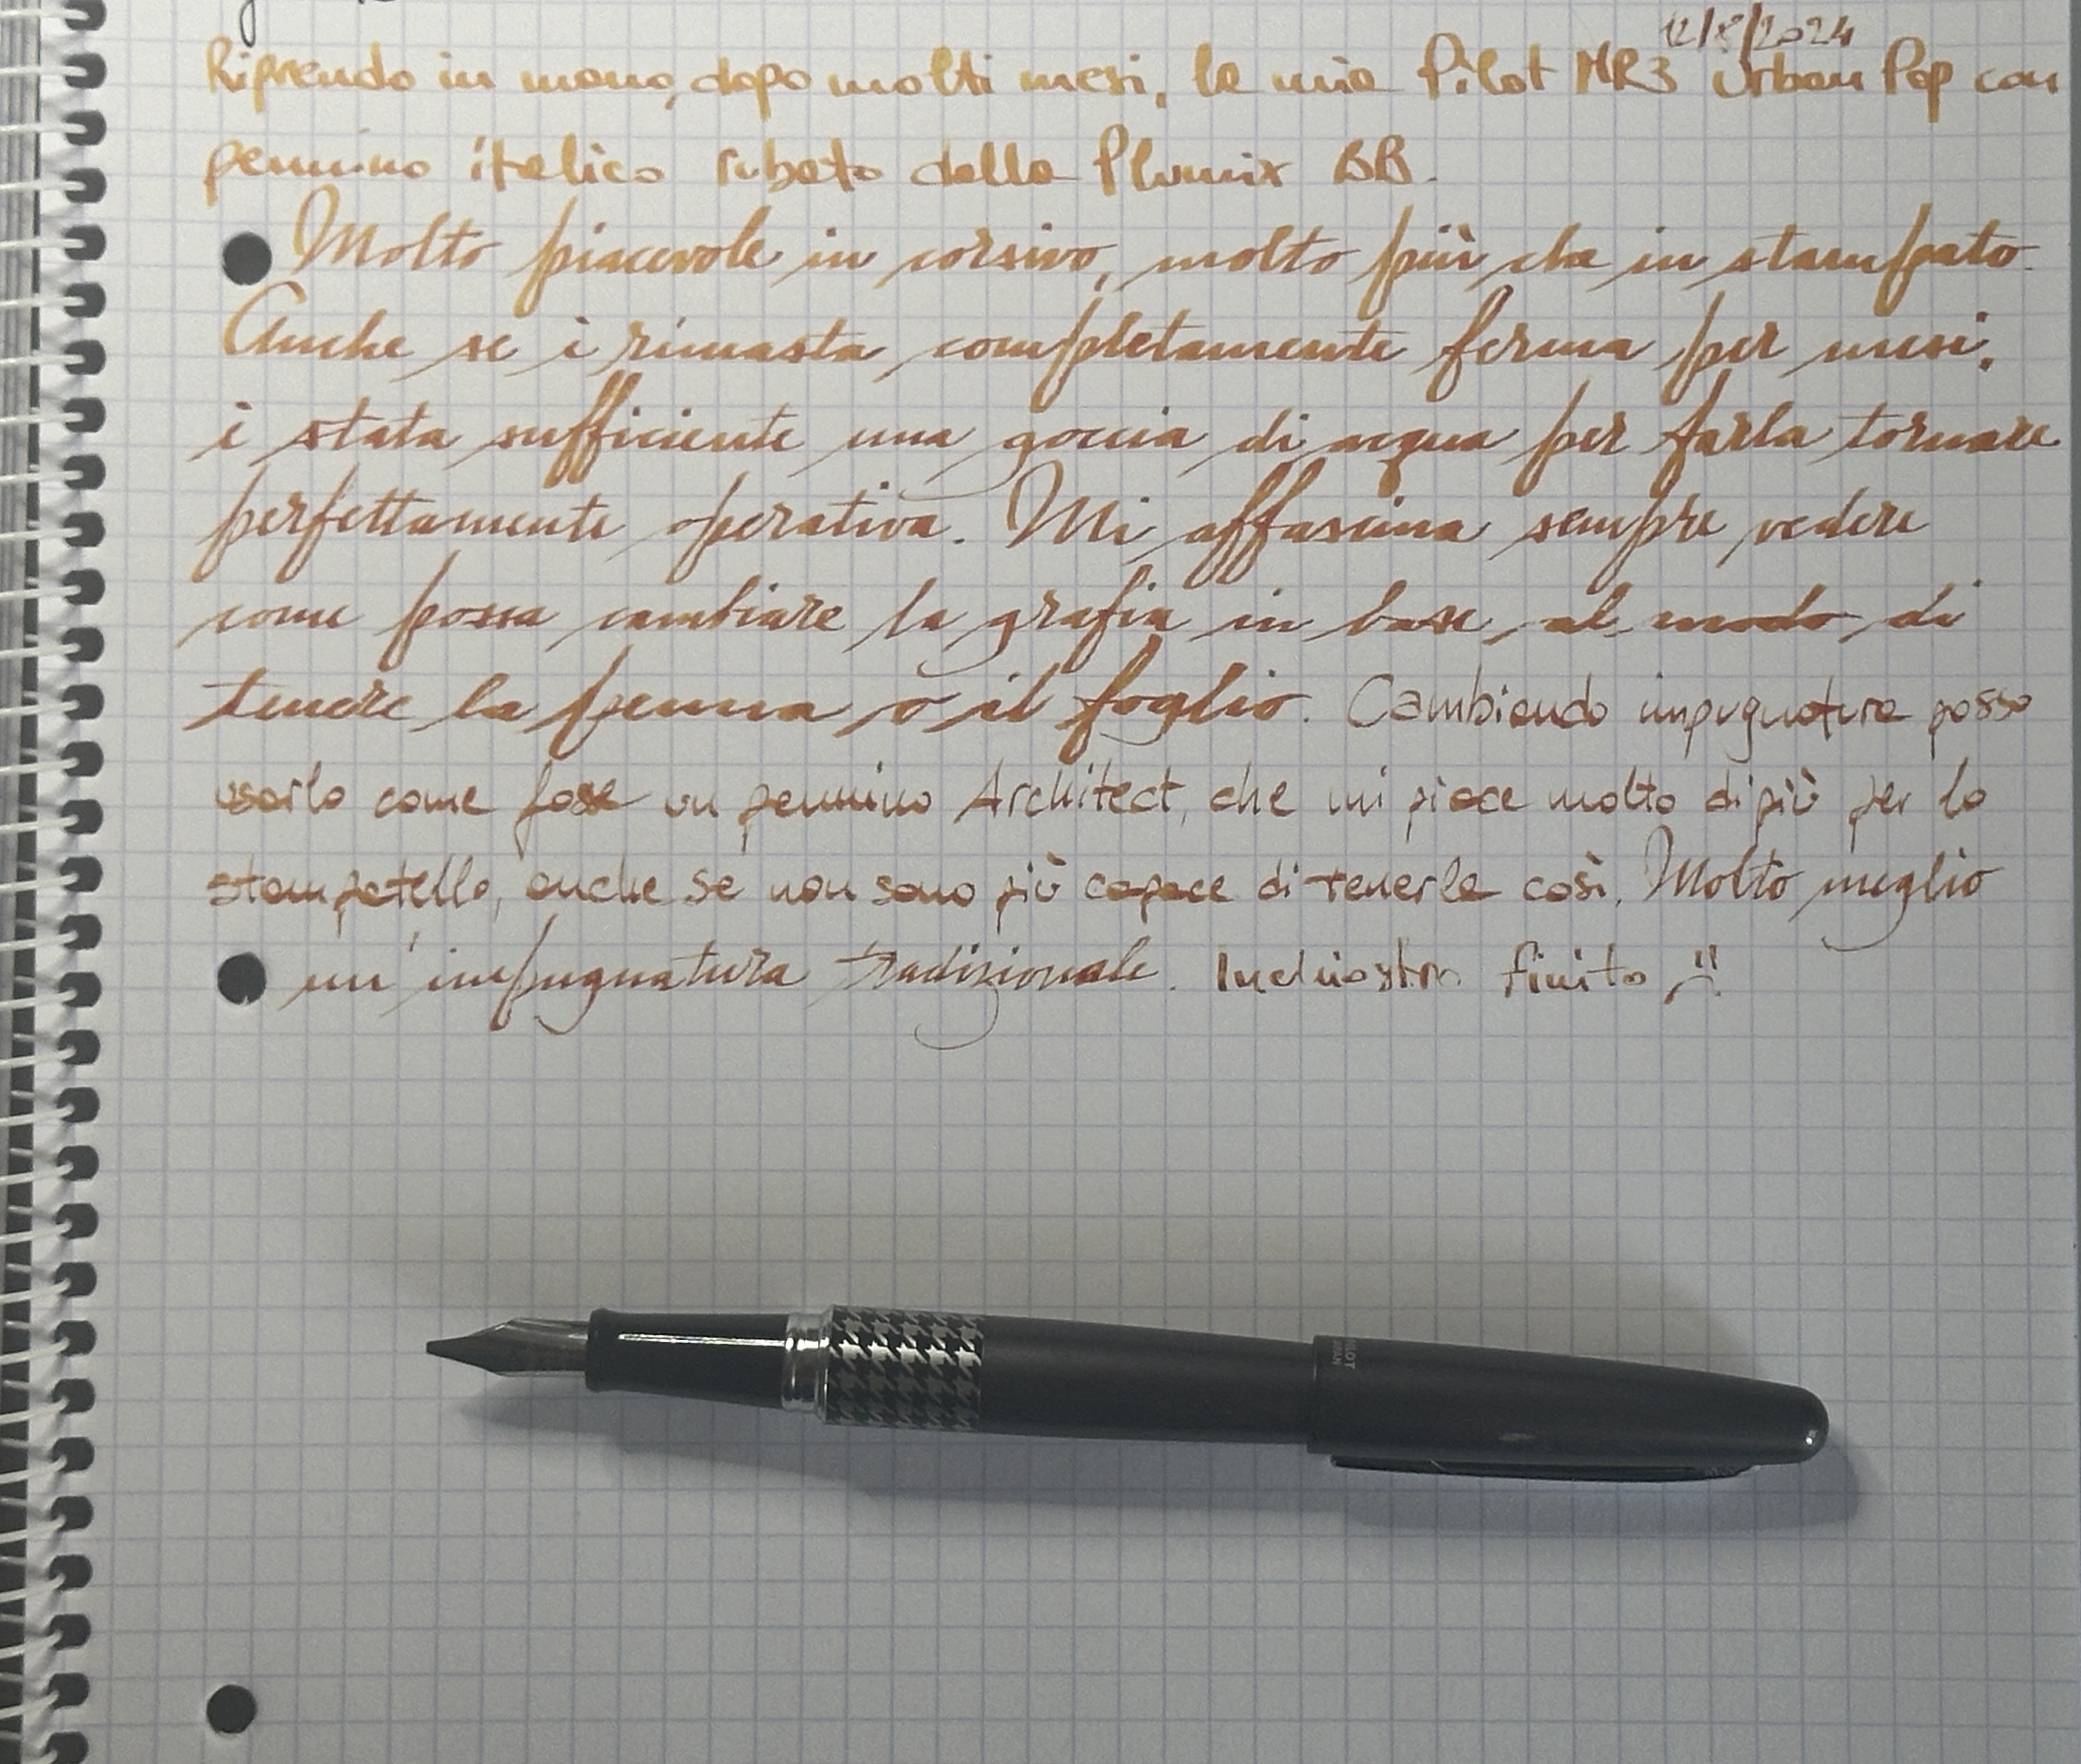 12/8/2024
Riprendo in mano, dopo molti mesi, la mia Pilot MR3 Urban Pop con
pennino italico rubato dalla Plumix BB.
Molto piacevole in corsivo, molto più che in stampato.
Anche se è rimasta completamente ferma per mesi,
è stata sufficiente una goccia di acqua per farla tornare
perfettamente operativa. Mi affascina sempre vedere
come possa cambiare la grafia in base al modo di
tenere la penna o il foglio. Cambiando impugnatura posso
usarlo come fosse un pennino Architect, che mi piace molto di più per lo
stampatello, anche se non sono più capace di tenerla così. Molto meglio
un'impugnatura tradizionale. Inchiostro finito :(
PILOT
JAPAN